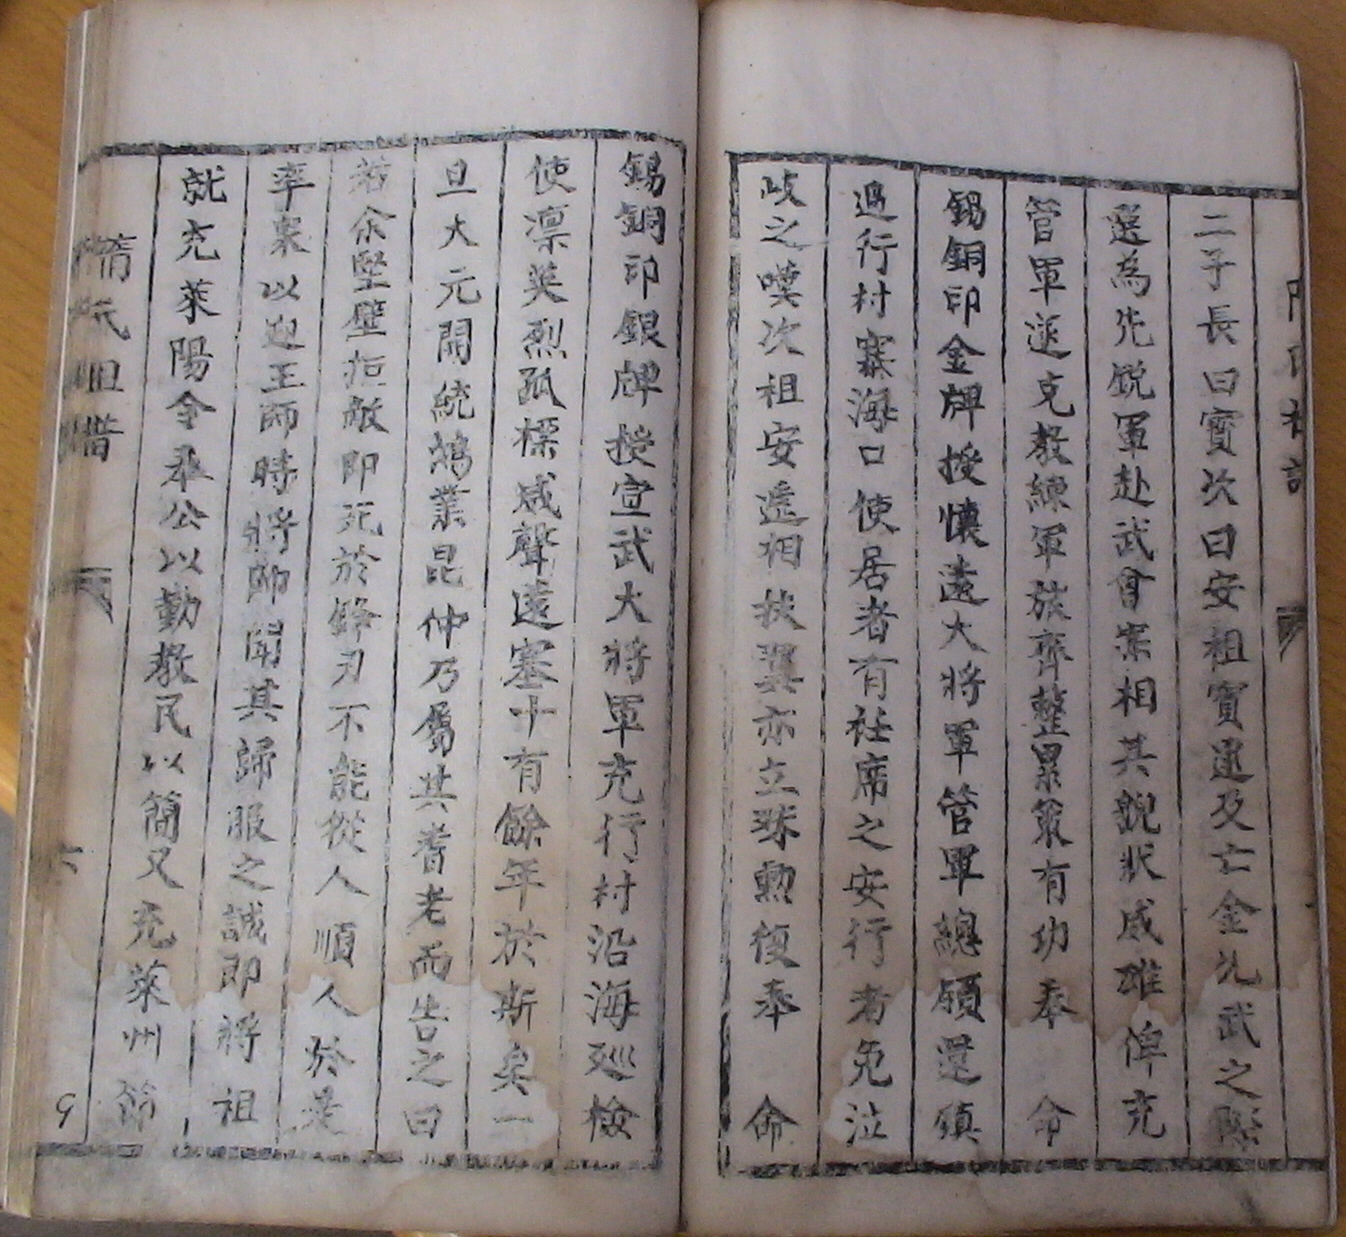 二子長曰寳次曰安祖寳逮及亡金尤武之際
選為先鋭軍赴武會寀相其貌狀威雄俾充
管軍逐克教練軍旅齊整累策有功奉 命
錫銅印金牌授懷遠大將軍管軍總領還鎮
過行村寨海口使居者有衽席之安行者免泣
岐之嘆次祖安遞相扶翼亦立殊勲復奉 命
錫銅印銀牌授宣武大將軍充行村沿海廵檢
使凛英烈孤標威聲遠塞十有餘年於斯矣一
旦大元開統鴻業昆仲乃屬其耆老而告之曰
若余堅壁拒敵即死於鋒刃不能從人順人於是
率衆以迎王師時將帥聞其歸服之誠即將祖
就充萊陽令奉公以勤教民以簡又充萊州節
隋氏祖譜
六
9